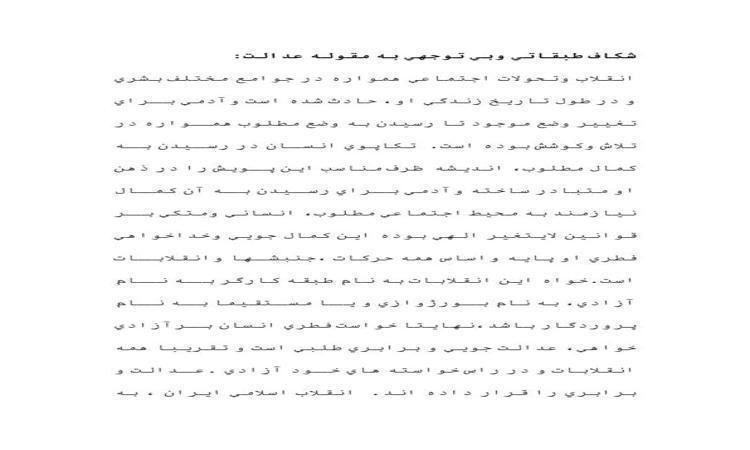 شکاف طبقاتي وبي توجهي به مقوله عدالت:
انقلاب وتحولات اجتماعي همواره در جوامع مختلف بشري
و در طول تاريخ زندگي او، حادث شده است وآدمي براي
تغيير وضع موجود تا رسيدن به وضع مطلوب همواره در
تلاش وکوشش بوده است. تکاپوي انسان در رسيدن به
کمال مطلوب، انديشه ظرف مناسب اين پويش را در ذهن
او متبادر ساخته وآدمي براي رسيدن به آن کمال
نيازمند به محيط اجتماعي مطلوب، انساني ومتکي بر
قوانين لايتغير الهي بوده اين کمال جويي وخداخواهي
فطري او پايه واساس همه حرکات ،جنبشها وانقلابات
است.خواه اين انقلابات به نام طبقه کارگر به نام
آزادي، به نام بورژوازي و يا مستقيما به نام
پروردگار باشد،نهايتا خواست فطري انسان برآزادي
خواهي، عدالت جويي و برابري طلبي است و تقريبا همه
انقلابات و در راس خواسته هاي خود آزادي .عدالت و
برابري را قرار داده اند. انقلاب اسلامي ايران ، به